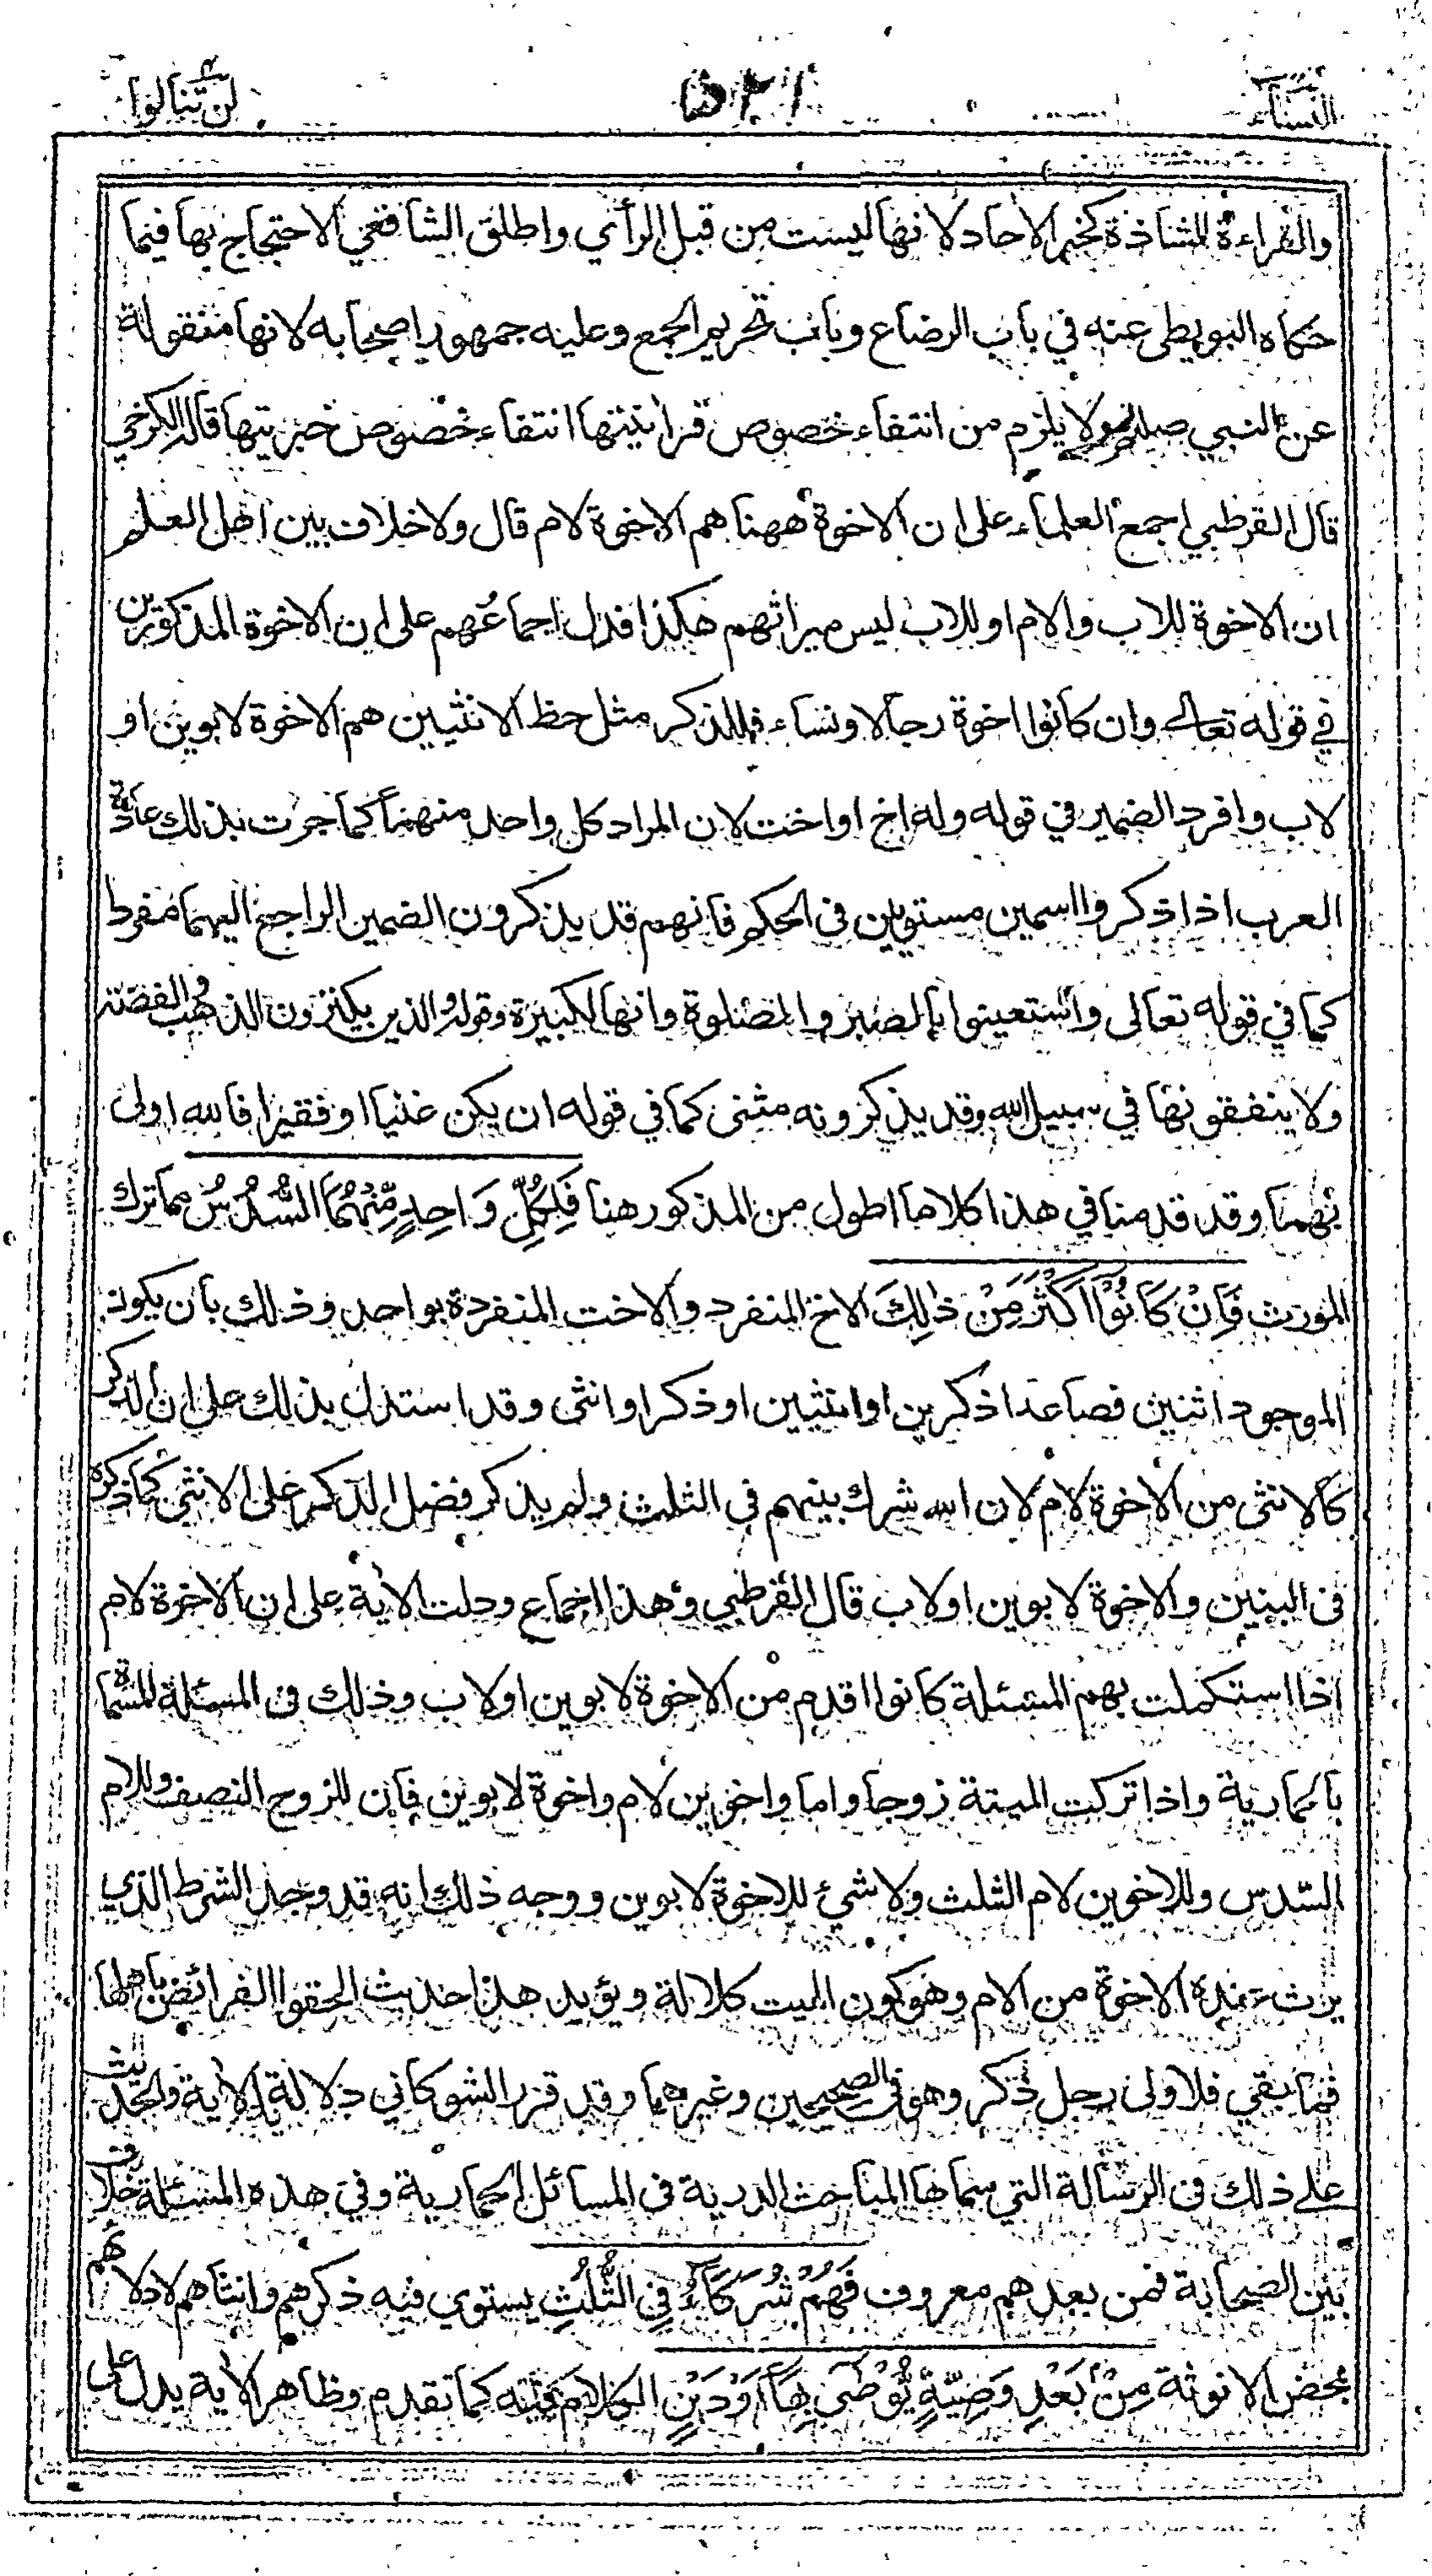 النساء
٥٢١
لن تنالوا
والقراءة الشاذة كخبر الاحاد لانها ليست من قبل الرأي واطلق الشافعي الاحتجاج بها فيما
حكاه البويطي عنه في باب الرضاع وباب تحريم الجمع وعليه جمهور اصحابه لانها منقولة
عن النبي صللم ولا يلزم من انتفاء خصوص قرأنيتها انتفاء خصوص خبريتها قاله الكرخي
قال القرطبي اجمع العلماء على ان الاخوة ههنا هم الاخوة لام قال ولا خلاف بين اهل العلم
ان الاخوة للاب والام او للاب ليس ميراثهم هكذا فدل اجماعهم على ان الاخوة المذكورين
في قوله تعالى وان كانوا اخوة رجالا ونساء فللذكر مثل حظ الانثيين هم الاخوة لابوين او
لاب وافرد الضمير في قوله وله اخ او اخت لان المراد كل واحد منهما كما جرت بذلك عادة
العرب اذا ذكروا اسمين مستويين في الحكم فانهم قد يذكرون الضمير الراجع اليهما مفردا
كما في قوله تعالى واستعينوا بالصبر والصلوة وانها لكبيرة وقوله والذين يكنزون الذهب والفضة
ولا ينفقونها في سبيل الله وقد يذكرونه مثنى كما في قوله ان يكن غنيا او فقيرا فالله اولى
بهما وقد قدمنا في هذا كلاما اطول من المذكور هنا فَلِكُلِّ وَاحِدٍ مِّنْهُمَا السُّدُسُ مما ترك
المورث فَاِنْ كَانُوْٓا اَكْثَرَ مِنْ ذٰلِكَ الاخ المنفرد والاخت المنفردة بواحد وذلك بان يكون
الموجود اثنين فصاعدا ذكرين او انثيين او ذكرا وانثى وقد استدل بذلك على ان الذكر
كالانثى من الاخوة لام لان الله شرك بينهم في الثلث ولم يذكر فضل الذكر على الانثى كما ذكره
في البنين والاخوة لابوين او لاب قال القرطبي وهذا اجماع ودلت الاية على ان الاخوة لام
اذا استكملت بهم المسئلة كانوا اقدم من الاخوة لابوين او لاب وذلك في المسئلة المسماة
بالحمارية واذا تركت الميتة زوجا واما واخوين لام واخوة لابوين فان للزوج النصف وللام
السدس وللاخوين لام الثلث ولا شيء للاخوة لابوين ووجه ذلك انه قد وجد الشرط الذي
يرث عنده الاخوة من الام وهو كون الميت كلالة ويؤيد هذا حديث الحقوا الفرائض باهلها
فما بقي فلاولى رجل ذكر وهو في الصحيحين وغيرهما وقد قرر الشوكاني دلالة الاية والحديث
على ذلك في الرسالة التي سماها المباحث الدرية في المسائل الحمارية وفي هذه المسئلة خلاف
بين الصحابة فمن بعدهم معروف فَهُمْ شُرَكَآءُ فِي الثُّلُثِ يستوي فيه ذكرهم وانثاهم لادلائهم
بمحض الانوثة مِنْۢ بَعْدِ وَصِيَّةٍ يُّوْصٰى بِهَآ اَوْ دَيْنٍ الكلام فيه كما تقدم وظاهر الاية يدل على